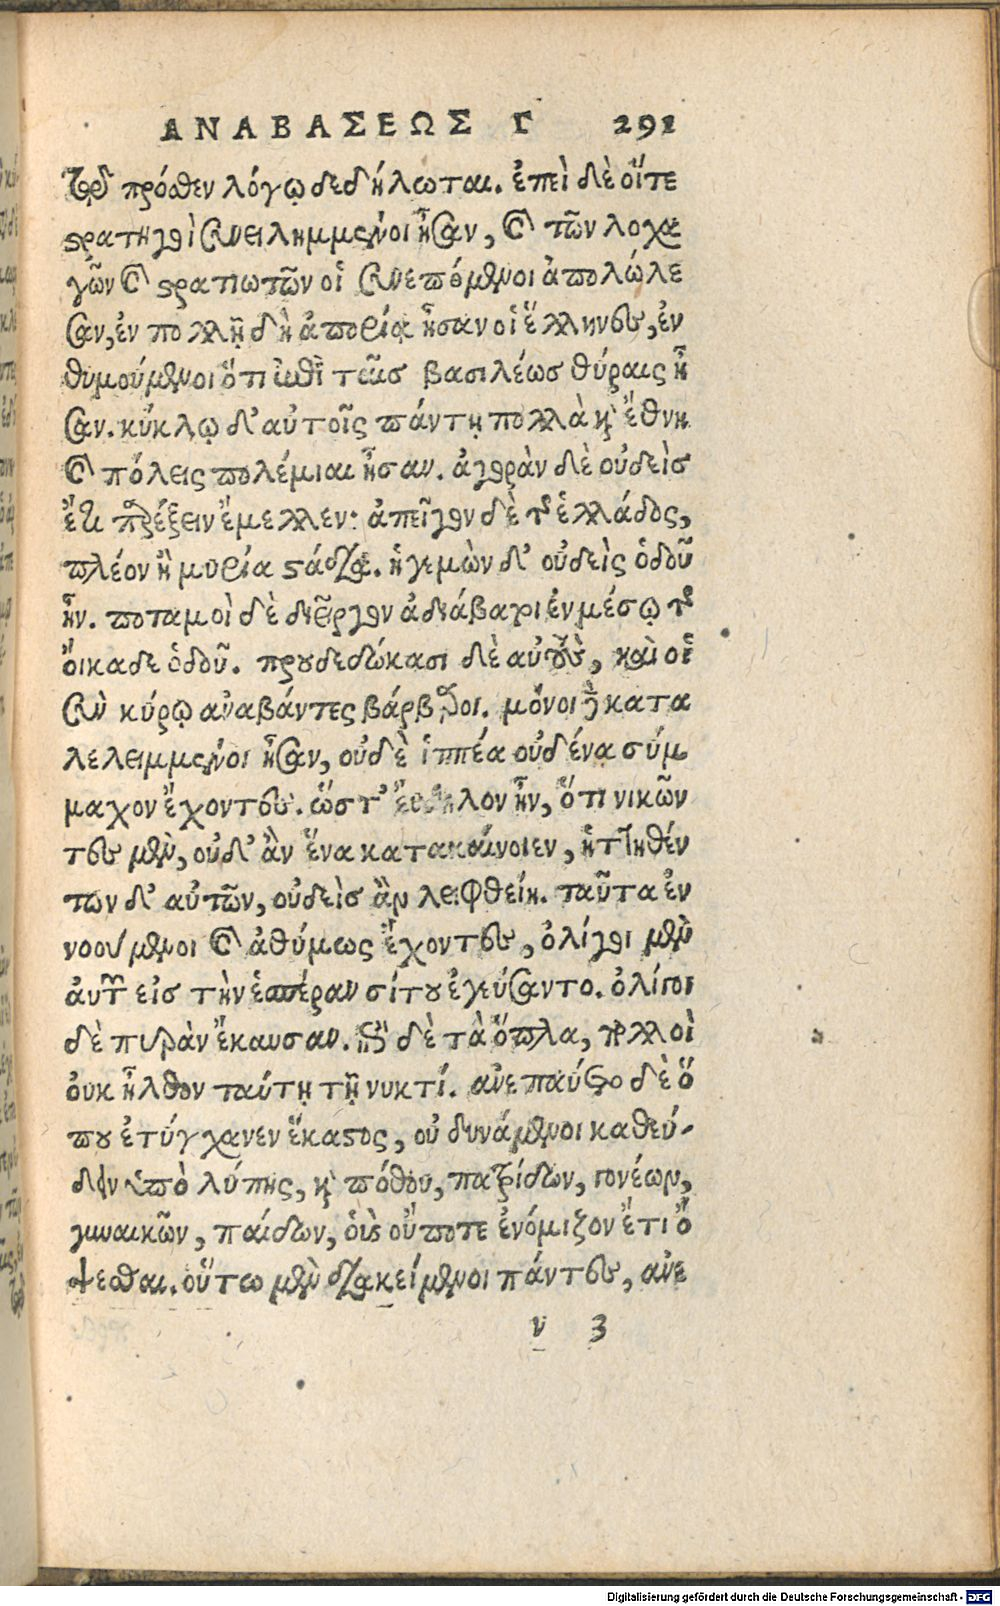 ΑΝΑΒΑΣΕΩΣ Γ 291
τῷ πρόσθεν λόγῳ δεδήλωται. ἐπεὶ δὲ οἵτε
στρατηγοὶ συνειλημμένοι ἦσαν, καὶ τῶν λοχα
γῶν καὶ στρατιωτῶν οἱ συνεπόμενοι ἀπολώλε
σαν, ἐν πολλῇ δὴ ἀπορίᾳ ἦσαν οἱ ἕλληνες, ἐν
θυμούμενοι ὅτι ἐπὶ ταῖς βασιλέως θύραις ἦ
σαν. κύκλῳ δ' αὐτοῖς πάντῃ πολλὰ καὶ ἔθνη
καὶ πόλεις πολέμιαι ἦσαν. ἀγορὰν δὲ οὐδεὶς
ἔτι παρέξειν ἔμελλεν· ἀπεῖχον δὲ τῆς ἑλλάδος,
πλέον ἢ μυρία στάδια. ἡγεμὼν δ' οὐδεὶς ὁδοῦ
ἦν. ποταμοὶ δὲ διεῖργον ἀδιάβατοι ἐν μέσῳ τῆς
οἴκαδε ὁδοῦ. προυδεδώκασι δὲ αὐτοὺς, καὶ οἱ
σὺν κύρῳ ἀναβάντες βάρβαροι. μόνοι δὲ κατα
λελειμμένοι ἦσαν, οὐδὲ ἱππέα οὐδένα σύμ
μαχον ἔχοντες. ὥστ' εὔδηλον ἦν, ὅτι νικῶν
τες μὲν, οὐδ' ἂν ἕνα κατακαίνοιεν, ἡττηθέν
των δ' αὐτῶν, οὐδεὶς ἂν λειφθείη. ταῦτα ἐν
νοούμενοι καὶ ἀθύμως ἔχοντες, ὀλίγοι μὲν
αὐτῶν εἰς τὴν ἑσπέραν σίτου ἐγεύσαντο. ὀλίγοι
δὲ πῦρ ἀνέκαυσαν. ἐπὶ δὲ τὰ ὅπλα, πολλοὶ
οὐκ ἦλθον ταύτῃ τῇ νυκτί. ἀνεπαύοντο δὲ ὅ
που ἐτύγχανεν ἕκαστος, οὐ δυνάμενοι καθεύ-
δειν ὑπὸ λύπης, καὶ πόθου, πατρίδων, γονέων,
γυναικῶν, παίδων, οὓς οὔποτε ἐνόμιζον ἔτι ὄ
ψεσθαι. οὕτω μὲν διακείμενοι πάντες, ἀνε
ν 3
Digitalisierung gefördert durch die Deutsche Forschungsgemeinschaft - DFG